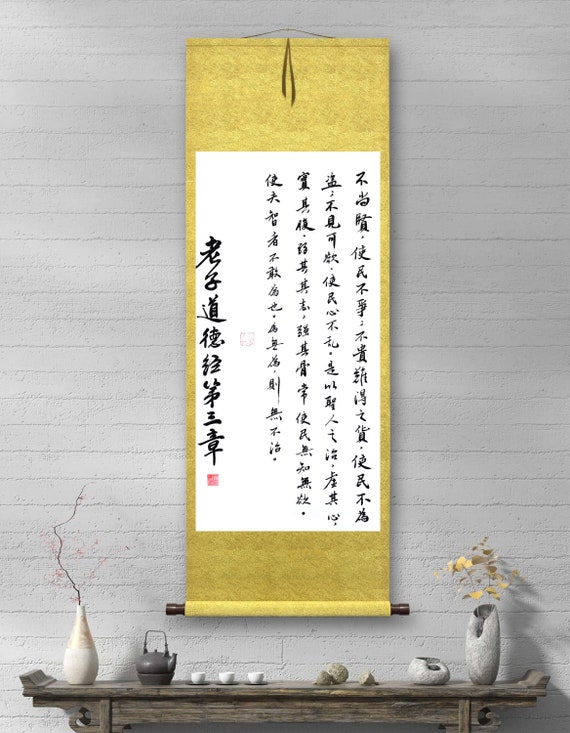 不尚賢,使民不爭;不貴難得之貨,使民不為
盜;不見可欲,使民心不乱。是以聖人之治,虛其心,
實其腹,弱其其志,強其骨常使民無知無欲。
使夫智者不敢為也。為無為,則無不治。
老子道德经第三章